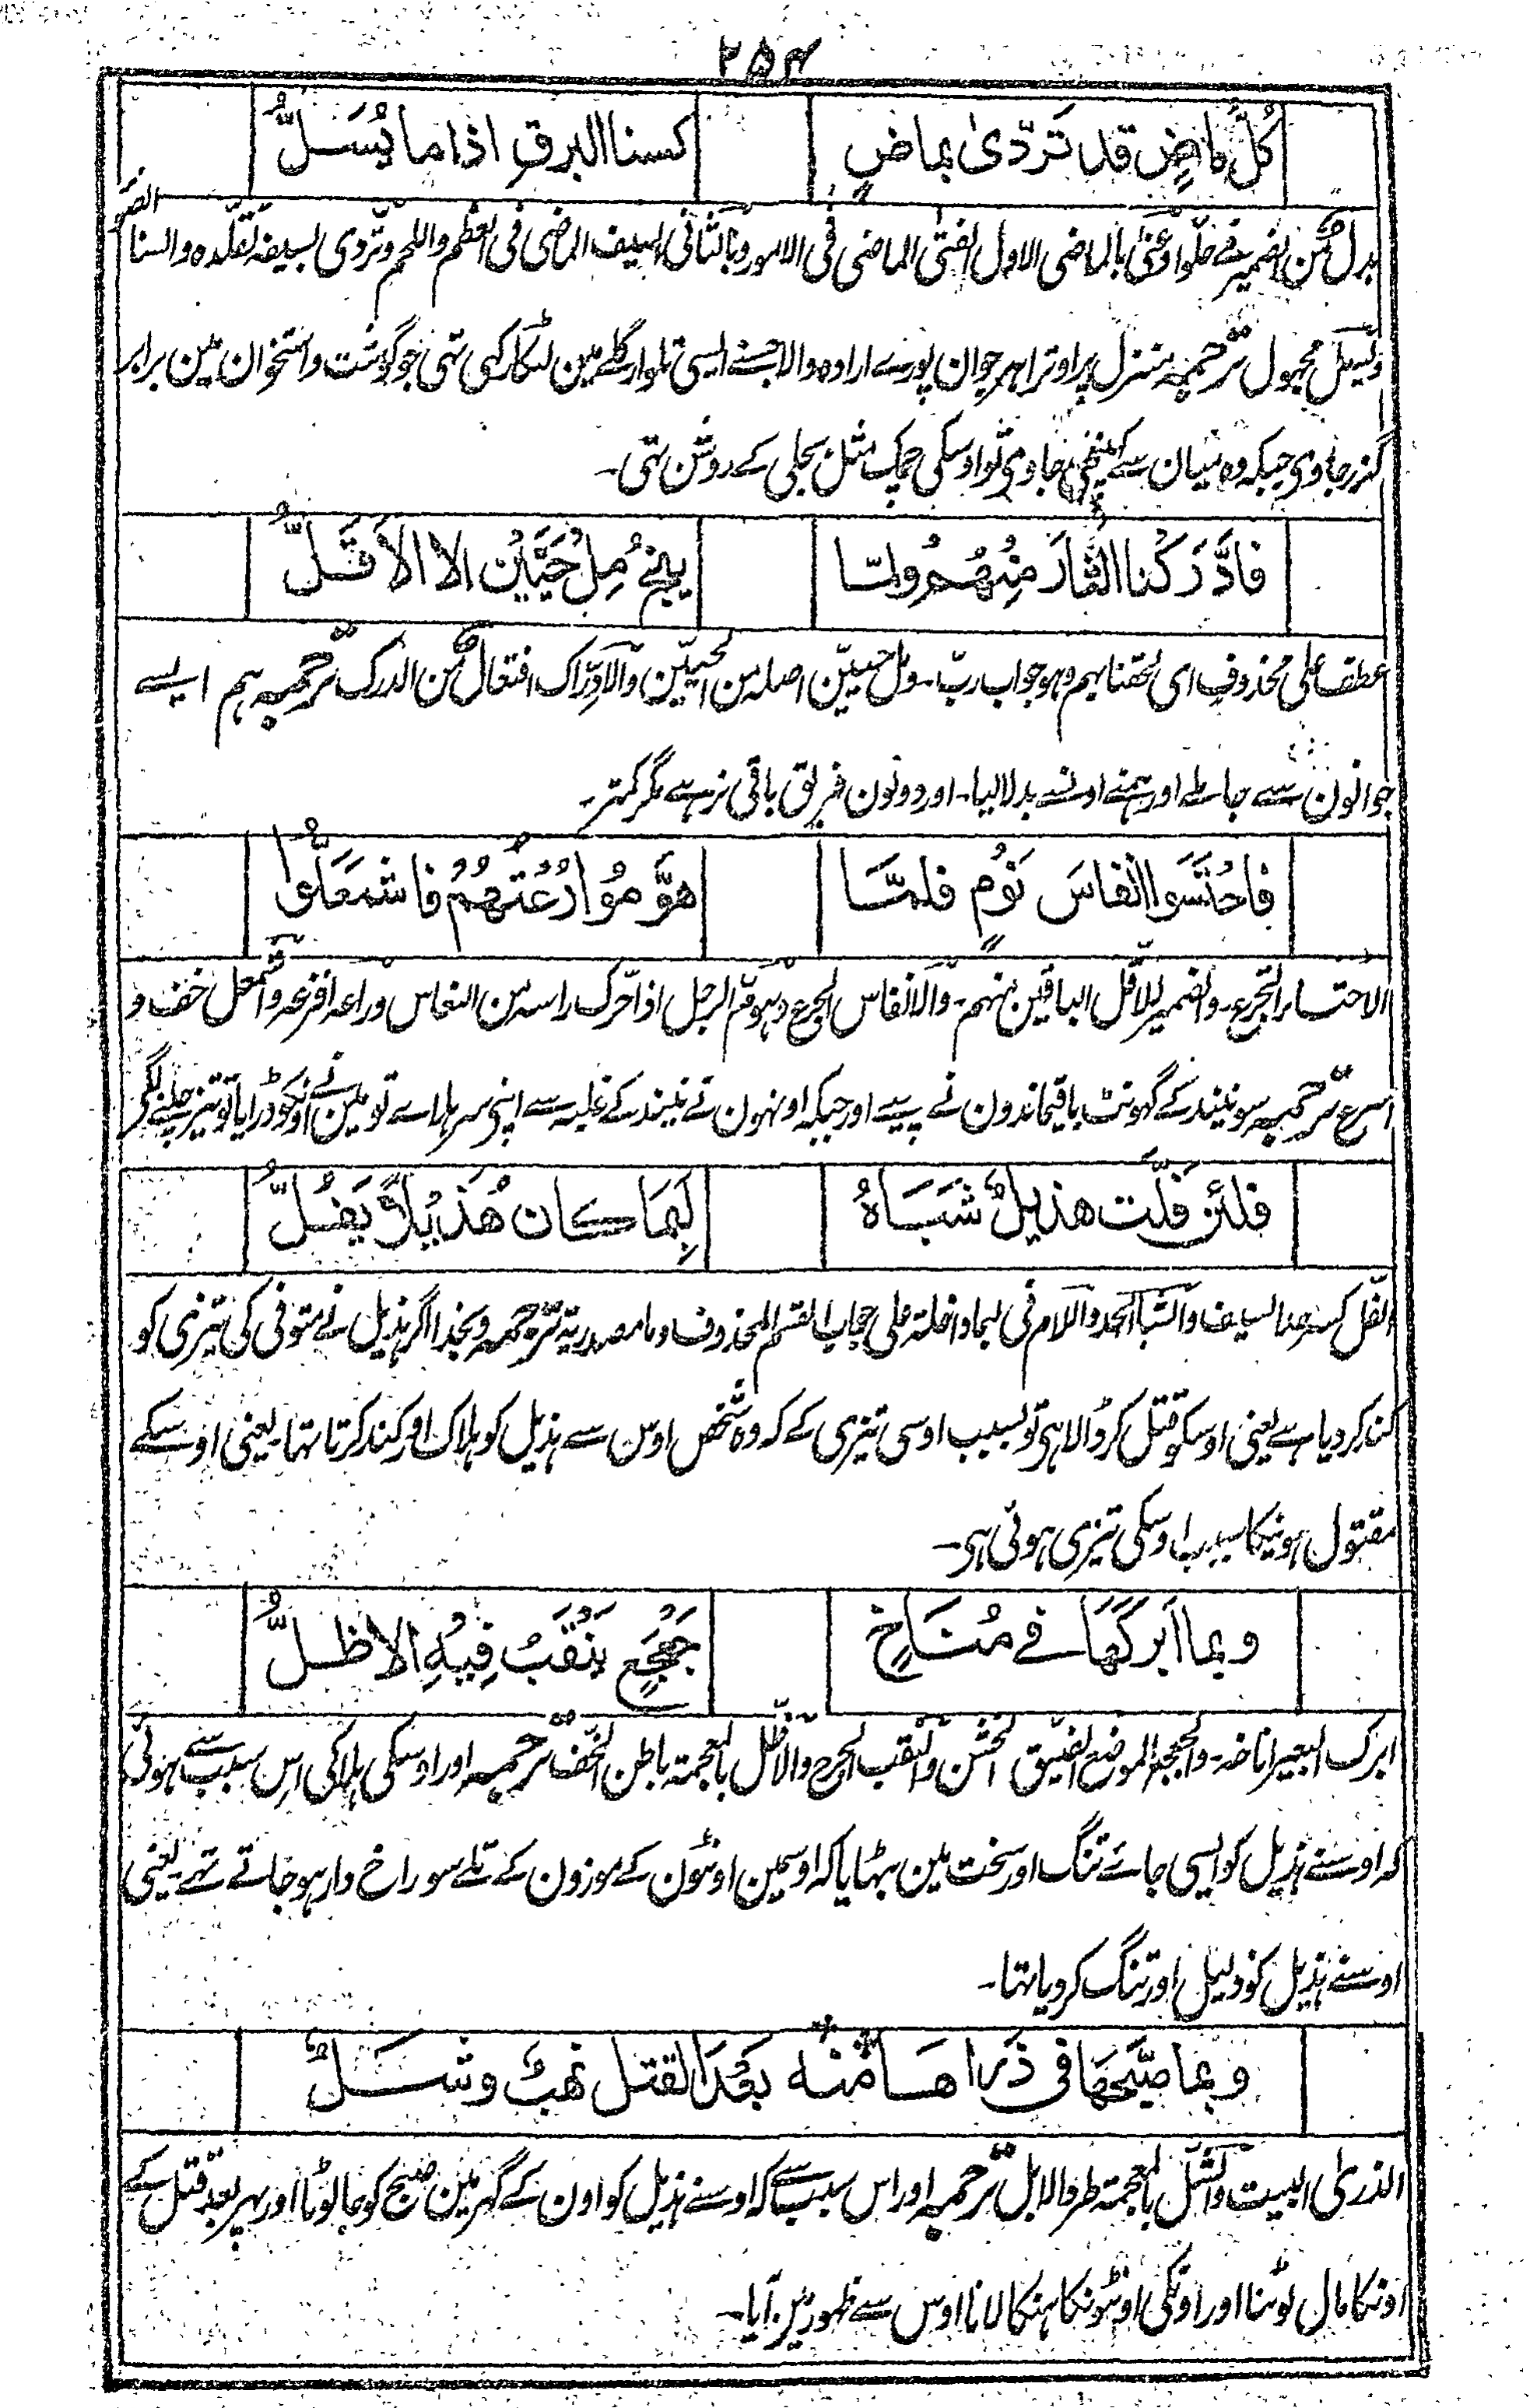 ۲۵۴
كُلُّ ماضٍ قد تَرَدّىٰ بماضٍ كسنا البرقِ اذا ما يُسَلُّ
بدل من الضمير فے حلوا وعنیٰ بالماضی الاول الفتیٰ الماضی فی الامور وبالثانی السیف الماضی فی العظم واللحم وتردی بسیفه تقلّده والسنا الضوٗ
ویُسَلّ مجہول ترجمہ منزل پر اوترا ہر جوان پورے ارادہ والا جسنے ایسی تلوار گلے مین لٹکا رکہی تہی جو گوشت و استخوان مین برابر
گذر جاوی جبکہ وہ میان سے کہینچی جاوی تو اوسکی چمک مثل بجلی کے روشن تہی۔
فادَّرَكْنا الثارَ مِنْهُمْ ولمّا يَنْجُ مِلْحَيَّيْنِ الا الاَقَلُّ
عطف علی محذوفٍ ای لحقنا بہم وہو جواب ربّ۔ ومل حیین اصله من الحیین والادّراک افتعال من الدرک ترجمہ ہم ایسے
جوانون سے جا ملے اور ہمنے اونسے بدلا لیا۔ اور دونون فریق باقی نرہے مگر کمتر۔
فاحْتَسَوا انفاسَ نَوْمٍ فلمَّا هوَّمُوا رُعْتَهُمْ فاشمَعَلُّوا
الاحتساء التجرع۔ والضمیر للاقل الباقین منہم۔ والانفاس الجرع وہوم الرجل اذا حرک راسه من النعاس وراعه افزعه واشمعل خف و
اسرع ترجمہ سو نیند کے گہونٹ باقیماندون نے پیے اور جبکہ اونہون نے نیند کے غلبہ سے اپنی سر ہلاے تو مین نے اونکو ڈرایا تو تیز چلنے لگے
فلئن فَلَّت هذيلٌ شَبَاهُ لَبِمَا كان هُذَيْلًا يَفُلُّ
الفل کسر حد السیف والشبا الحد واللام فی لبما داخلة علی جواب القسم المحذوف وما مصدریة ترجمہ وبخدا اگر ہذیل نے متوفی کی تیزی کو
کند کر دیا ہے یعنی اوسکو قتل کر ڈالا ہی تو بسبب اوسی تیزی کے کہ وہ شخص اوس سے ہذیل کو ہلاک اور کند کرتا تہا۔ یعنی اوسکے
مقتول ہونیکا سبب اوسکی تیزی ہوئی ہی۔
وبما اَبْرَكَهَا فے مُنَاخٍ جَعْجَعٍ يَنْقَبُ فِيْهِ الاظلُّ
ابرک البعیر اناخه۔ والجعجع الموضع الضیق الخشن والنقب الجرح والاظل بالمعجمة باطن الخف ترجمہ اور اوسکی ہلاکی اس سبب سے ہوئی
کہ اوسنے ہذیل کو ایسی جاے تنگ اور سخت مین بہٹایا کہ اوسمین اونٹون کے موزون کے تلے سوراخ دار ہو جاتے تہے۔ یعنی
اوسنے ہذیل کو ذلیل اور تنگ کر دیا تہا۔
وبما صبّحها فی ذَراها منه بَعْدَ القتل نهبٌ وشَلُّ
الذریٰ البیت والشل بالمعجمة طرد الابل ترجمہ اور اس سبب سے کہ اوسنے ہذیل کو اون کے گہر مین صبح کو جا لوٹا اور پہر بعد قتل کے
اونکا مال لوٹنا اور اونکی اونٹونکا ہنکا لانا اوس سے ظہور مین آیا۔